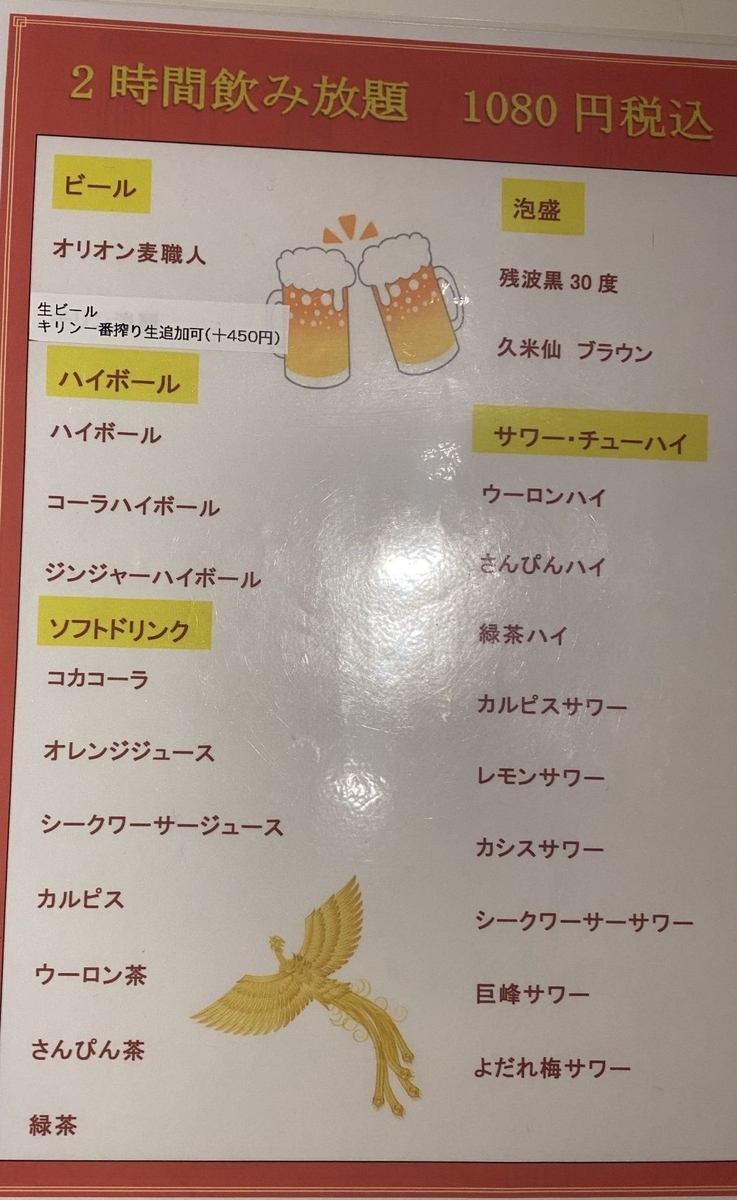 2時間飲み放題　1080円税込
ビール
オリオン麦職人
生ビール
キリン一番搾り生追加可(＋450円)
ハイボール
ハイボール
コーラハイボール
ジンジャーハイボール
ソフトドリンク
コカコーラ
オレンジジュース
シークワーサージュース
カルピス
ウーロン茶
さんぴん茶
緑茶
泡盛
残波黒30度
久米仙　ブラウン
サワー・チューハイ
ウーロンハイ
さんぴんハイ
緑茶ハイ
カルピスサワー
レモンサワー
カシスサワー
シークワーサーサワー
巨峰サワー
よだれ梅サワー